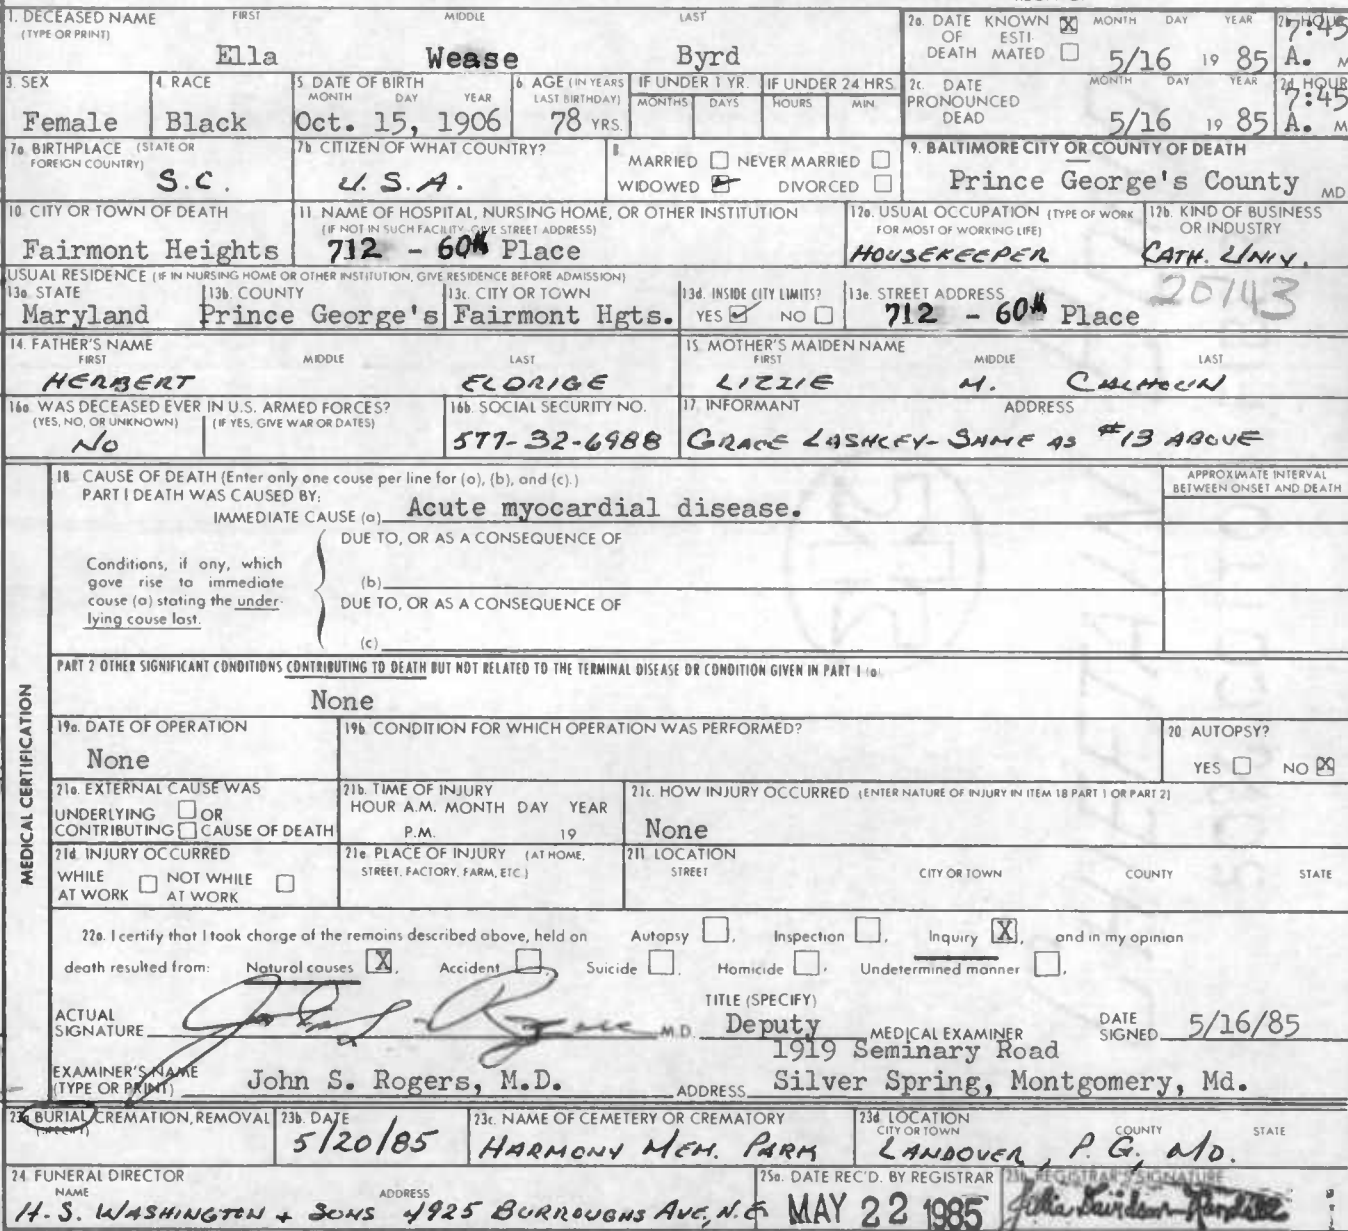 1. DECEASED NAME FIRST MIDDLE LAST
(TYPE OR PRINT)
Ella Wease Byrd
2a. DATE KNOWN ☒ MONTH DAY YEAR 2b. HOUR
OF ESTI-
DEATH MATED ☐ 5/16 19 85 7:45 A. M
3. SEX 4. RACE 5. DATE OF BIRTH 6. AGE (IN YEARS IF UNDER 1 YR. IF UNDER 24 HRS.
MONTH DAY YEAR LAST BIRTHDAY) MONTHS DAYS HOURS MIN.
Female Black Oct. 15, 1906 78 YRS.
2c. DATE MONTH DAY YEAR 2d. HOUR
PRONOUNCED
DEAD 5/16 19 85 7:45 A. M
7a. BIRTHPLACE (STATE OR
FOREIGN COUNTRY)
S.C.
7b. CITIZEN OF WHAT COUNTRY?
U.S.A.
8. MARRIED ☐ NEVER MARRIED ☐
WIDOWED ☑ DIVORCED ☐
9. BALTIMORE CITY OR COUNTY OF DEATH
Prince George's County MD
10. CITY OR TOWN OF DEATH
Fairmont Heights
11. NAME OF HOSPITAL, NURSING HOME, OR OTHER INSTITUTION
(IF NOT IN SUCH FACILITY, GIVE STREET ADDRESS)
712 - 60th Place
12a. USUAL OCCUPATION (TYPE OF WORK
FOR MOST OF WORKING LIFE)
HOUSEKEEPER
12b. KIND OF BUSINESS
OR INDUSTRY
CATH. UNIV.
USUAL RESIDENCE (IF IN NURSING HOME OR OTHER INSTITUTION, GIVE RESIDENCE BEFORE ADMISSION)
13a. STATE 13b. COUNTY 13c. CITY OR TOWN 13d. INSIDE CITY LIMITS? 13e. STREET ADDRESS 20743
Maryland Prince George's Fairmont Hgts. YES ☑ NO ☐ 712 - 60th Place
14. FATHER'S NAME
FIRST MIDDLE LAST
HERBERT ELDRIGE
15. MOTHER'S MAIDEN NAME
FIRST MIDDLE LAST
LIZZIE M. CALHOUN
16a. WAS DECEASED EVER IN U.S. ARMED FORCES?
(YES, NO, OR UNKNOWN) (IF YES, GIVE WAR OR DATES)
No
16b. SOCIAL SECURITY NO.
577-32-6988
17. INFORMANT ADDRESS
GRACE LASHLEY- SAME AS #13 ABOVE
MEDICAL CERTIFICATION
18. CAUSE OF DEATH (Enter only one cause per line for (a), (b), and (c).)
PART I DEATH WAS CAUSED BY:
APPROXIMATE INTERVAL
BETWEEN ONSET AND DEATH
IMMEDIATE CAUSE (a) Acute myocardial disease.
DUE TO, OR AS A CONSEQUENCE OF
Conditions, if any, which
gave rise to immediate
cause (a) stating the under-
lying cause last.
(b)
DUE TO, OR AS A CONSEQUENCE OF
(c)
PART 2 OTHER SIGNIFICANT CONDITIONS CONTRIBUTING TO DEATH BUT NOT RELATED TO THE TERMINAL DISEASE OR CONDITION GIVEN IN PART I (a)
None
19a. DATE OF OPERATION
None
19b. CONDITION FOR WHICH OPERATION WAS PERFORMED?
20. AUTOPSY?
YES ☐ NO ☒
21a. EXTERNAL CAUSE WAS
UNDERLYING ☐ OR
CONTRIBUTING ☐ CAUSE OF DEATH
21b. TIME OF INJURY
HOUR A.M. MONTH DAY YEAR
P.M. 19
21c. HOW INJURY OCCURRED (ENTER NATURE OF INJURY IN ITEM 18 PART 1 OR PART 2)
None
21d. INJURY OCCURRED
WHILE ☐ NOT WHILE ☐
AT WORK AT WORK
21e. PLACE OF INJURY (AT HOME,
STREET, FACTORY, FARM, ETC.)
21f. LOCATION
STREET CITY OR TOWN COUNTY STATE
22a. I certify that I took charge of the remains described above, held on Autopsy ☐, Inspection ☐, Inquiry ☒, and in my opinion
death resulted from: Natural causes ☒, Accident ☐, Suicide ☐, Homicide ☐, Undetermined manner ☐.
ACTUAL
SIGNATURE John S. Rogers M.D.
TITLE (SPECIFY)
Deputy MEDICAL EXAMINER
DATE
SIGNED 5/16/85
EXAMINER'S NAME
(TYPE OR PRINT) John S. Rogers, M.D.
1919 Seminary Road
ADDRESS Silver Spring, Montgomery, Md.
23a. BURIAL, CREMATION, REMOVAL
(SPECIFY)
23b. DATE
5/20/85
23c. NAME OF CEMETERY OR CREMATORY
HARMONY MEM. PARK
23d. LOCATION
CITY OR TOWN COUNTY STATE
LANDOVER, P.G., MD.
24. FUNERAL DIRECTOR
NAME ADDRESS
H.S. WASHINGTON + SONS 4925 BURROUGHS AVE, N.E
25a. DATE REC'D. BY REGISTRAR
MAY 22 1985
25b. REGISTRAR'S SIGNATURE
Julia Davidson-Randall